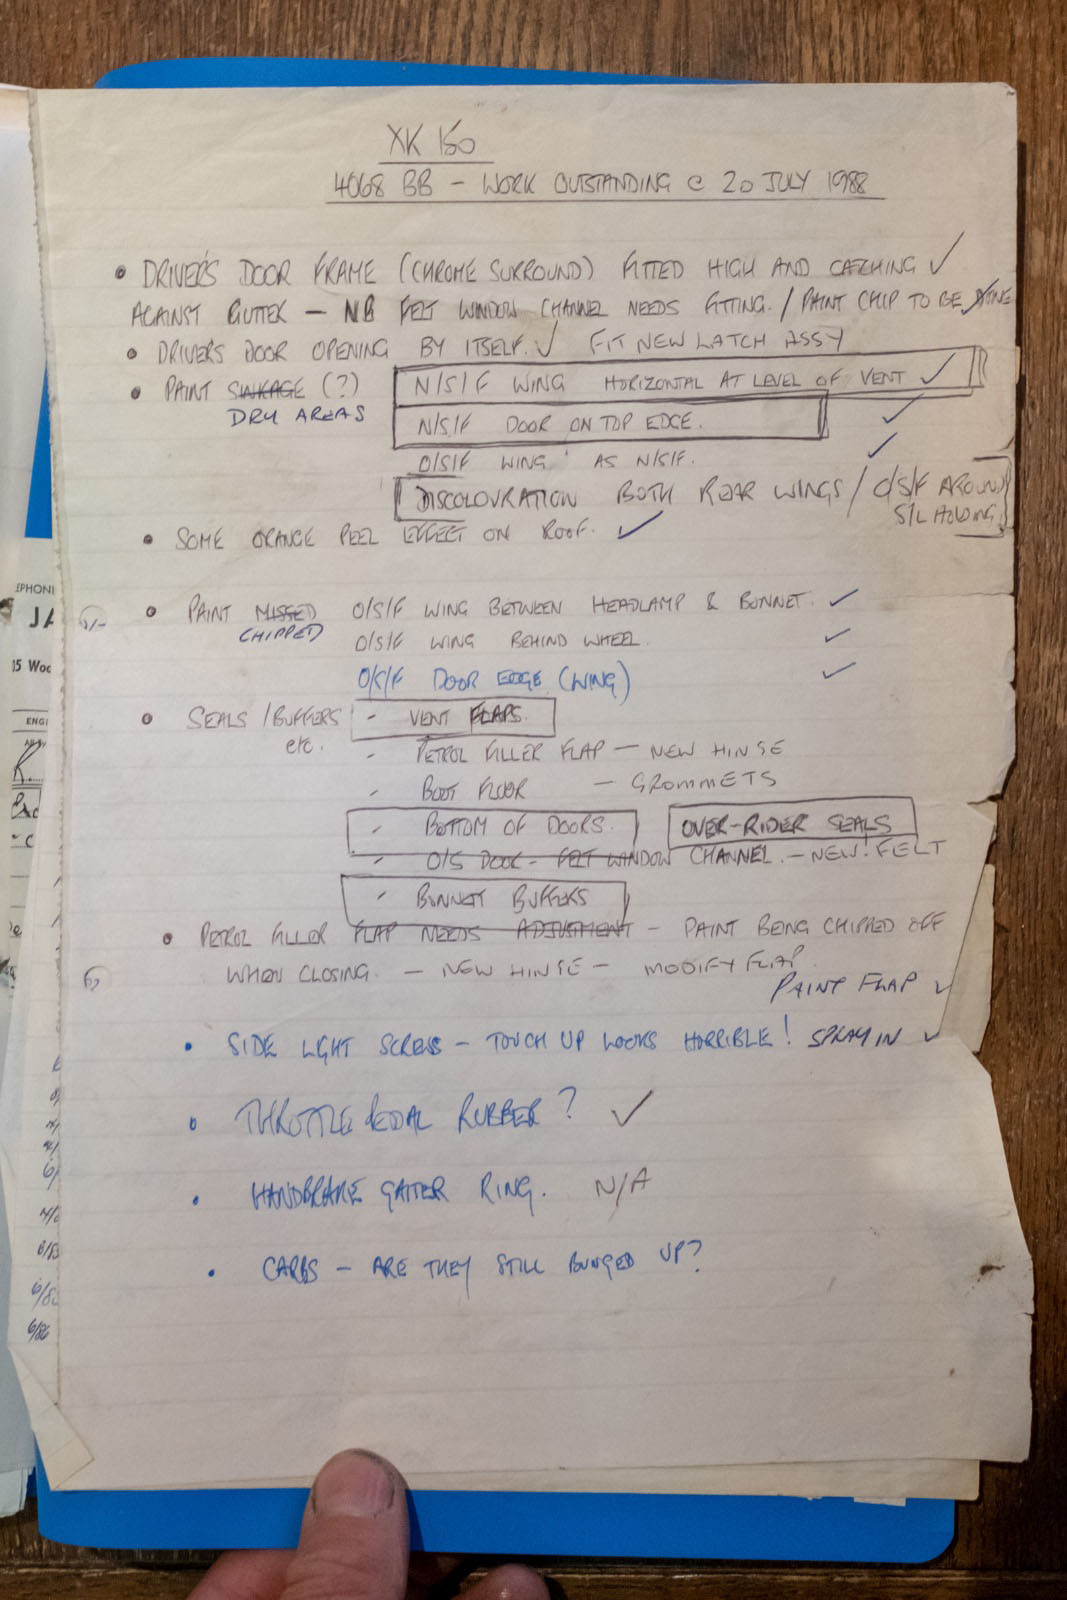 XK 150
4068 BB - WORK OUTSTANDING @ 20 JULY 1988
• DRIVER'S DOOR FRAME (CHROME SURROUND) FITTED HIGH AND CATCHING ✓
AGAINST GUTTER - NB FELT WINDOW CHANNEL NEEDS FITTING. / PAINT CHIP TO BE DONE
• DRIVERS DOOR OPENING BY ITSELF. ✓ FIT NEW LATCH ASSY
• PAINT SINKAGE (?) N/S/F WING HORIZONTAL AT LEVEL OF VENT ✓
DRY AREAS N/S/F DOOR ON TOP EDGE. ✓
O/S/F WING AS N/S/F. ✓
DISCOLOURATION BOTH REAR WINGS / O/S/F AROUND
S/L HOLDING
• SOME ORANGE PEEL EFFECT ON ROOF. ✓
• PAINT MISSED O/S/F WING BETWEEN HEADLAMP & BONNET. ✓
CHIPPED O/S/F WING BEHIND WHEEL. ✓
O/S/F DOOR EDGE (WING) ✓
• SEALS / BUFFERS - VENT FLAPS.
etc. - PETROL FILLER FLAP - NEW HINGE
- BOOT FLOOR - GROMMETS
- BOTTOM OF DOORS. OVER-RIDER SEALS
- O/S DOOR - FELT WINDOW CHANNEL. - NEW FELT
- BONNET BUFFERS
• PETROL FILLER FLAP NEEDS ADJUSTMENT - PAINT BEING CHIPPED OFF
WHEN CLOSING. - NEW HINGE - MODIFY FLAP.
PAINT FLAP ✓
• SIDE LIGHT SCREWS - TOUCH UP LOOKS HORRIBLE! SPRAY IN ✓
• THROTTLE PEDAL RUBBER? ✓
• HANDBRAKE GAITER RING. N/A
• CARBS - ARE THEY STILL BUNGED UP?
EPHON
JA
15 Woo
ENGI
6/86